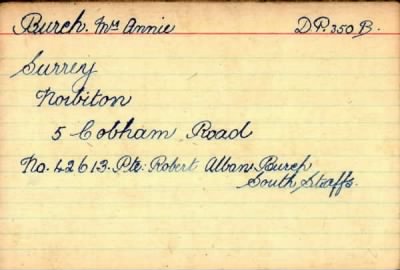 Burch. Mrs Annie D.P. 350 B.
Surrey
Norbiton
5 Cobham Road
No. 42613. Pte: Robert Alban Burch
South Staffs.